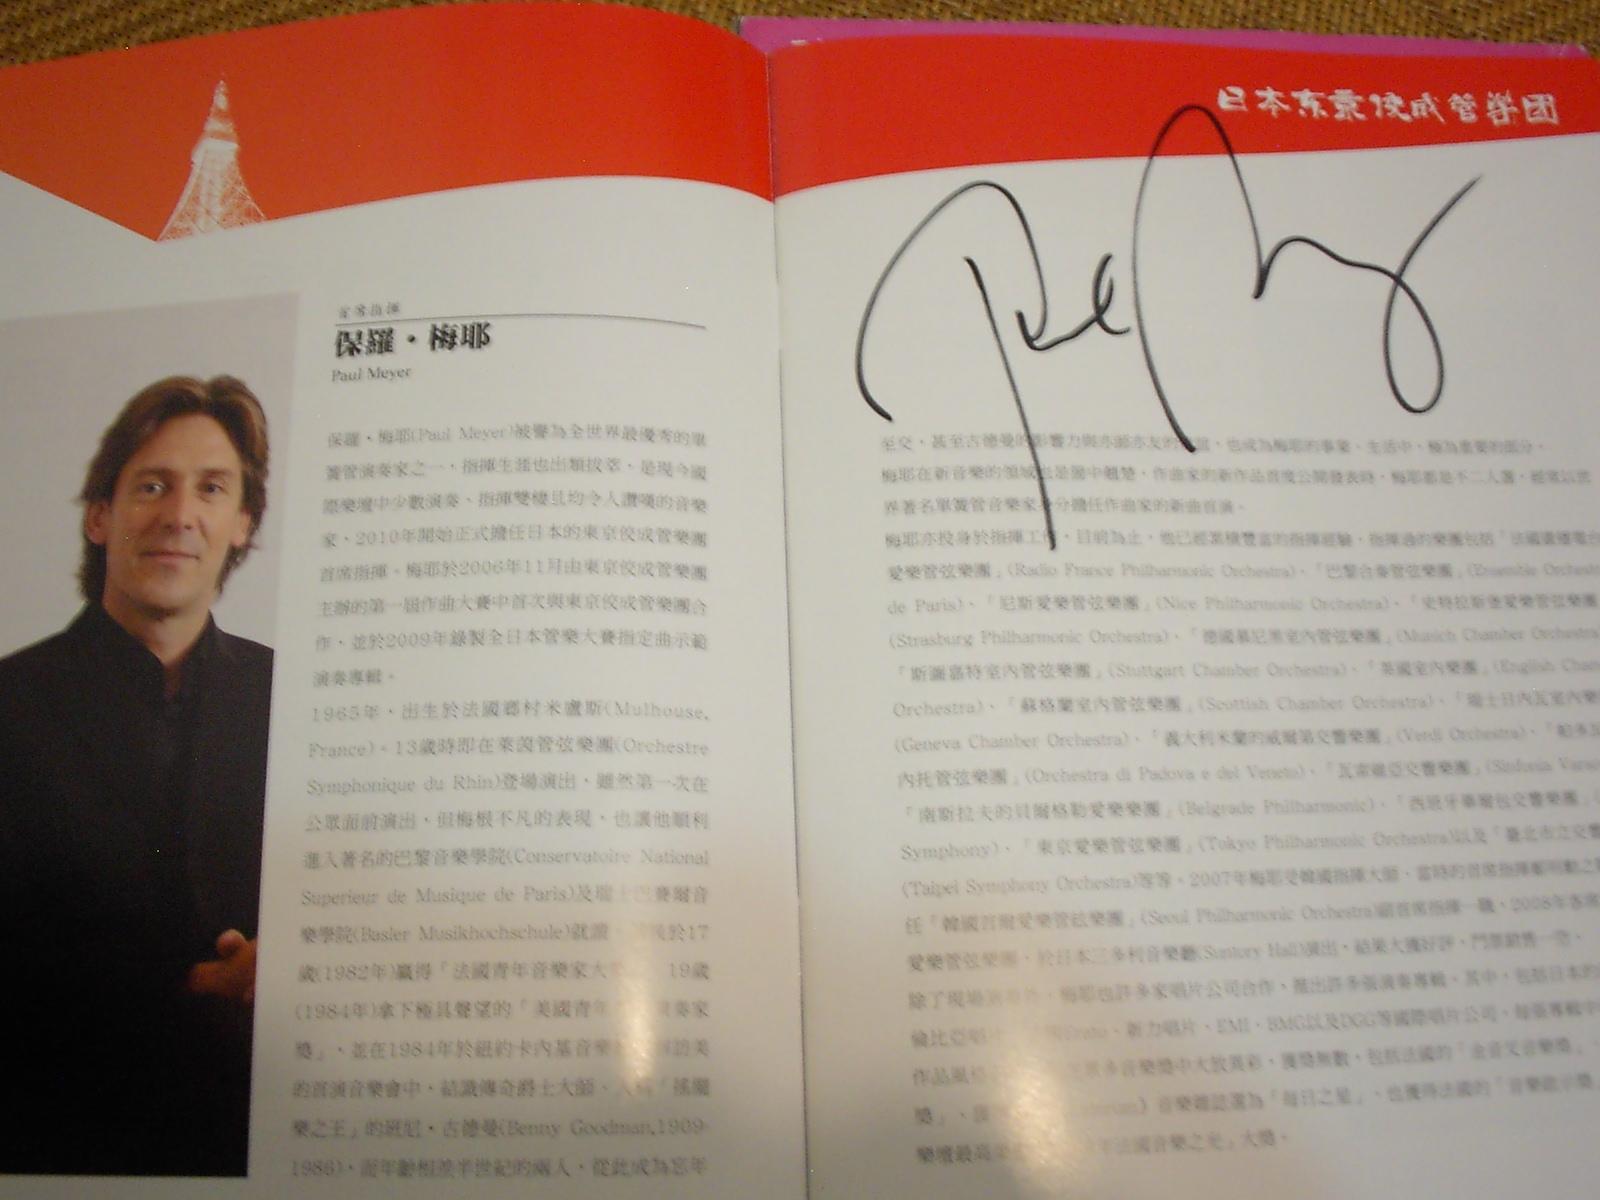 日本东京佼成管樂團
首席指揮
保羅・梅耶
Paul Meyer
保羅・梅耶(Paul Meyer)被譽為全世界最優秀的單
簧管演奏家之一，指揮生涯也出類拔萃，是現今國
際樂壇中少數演奏、指揮雙棲且均令人讚嘆的音樂
家，2010年開始正式擔任日本的東京佼成管樂團
首席指揮。梅耶於2006年11月由東京佼成管樂團
主辦的第一屆作曲大賽中首次與東京佼成管樂團合
作，並於2009年錄製全日本管樂大賽指定曲示範
演奏專輯。
1965年，出生於法國鄉村米盧斯(Mulhouse,
France)。13歲時即在萊茵管弦樂團(Orchestre
Symphonique du Rhin)登場演出，雖然第一次在
公眾面前演出，但梅根不凡的表現，也讓他順利
進入著名的巴黎音樂學院(Conservatoire National
Superieur de Musique de Paris)及瑞士巴賽爾音
樂學院(Basler Musikhochschule)就讀，於17
歲(1982年)贏得「法國青年音樂家大 19歲
(1984年)拿下極具聲望的「美國青年 演奏家
獎」，並在1984年於紐約卡內基音樂 訪美
的首演音樂會中，結識傳奇爵士大師、人稱「搖擺
樂之王」的班尼・古德曼(Benny Goodman,1909-
1986)，而年齡相差半世紀的兩人，從此成為忘年
至交，甚至古德曼的影響力與亦師亦友的 誼，也成為梅耶的事業、生活中，極為重要的部分。
梅耶在新音樂的領域也是箇中翹楚，作曲家的新作品首度公開發表時，梅耶都是不二人選，經常以世
界著名單簧管音樂家身分擔任作曲家的新曲首演。
梅耶亦投身於指揮工作，目前為止，他已經累積豐富的指揮經驗，指揮過的樂團包括「法國廣播電台
愛樂管弦樂團」(Radio France Philharmonic Orchestra)、「巴黎合奏管弦樂團」(Ensemble Orchestra
de Paris)、「尼斯愛樂管弦樂團」(Nice Philharmonic Orchestra)、「史特拉斯堡愛樂管弦樂團
(Strasburg Philharmonic Orchestra)、「德國慕尼黑室內管弦樂團」(Munich Chamber Orchestra)
「斯圖嘉特室內管弦樂團」(Stuttgart Chamber Orchestra)、「英國室內樂團」(English Cham
Orchestra)、「蘇格蘭室內管弦樂團」(Scottish Chamber Orchestra)、「瑞士日內瓦室內樂
(Geneva Chamber Orchestra)、「義大利米蘭的威爾第交響樂團」(Verdi Orchestra)、「帕多瓦
內托管弦樂團」(Orchestra di Padova e del Veneto)、「瓦索維亞交響樂團」(Sinfonia Varso
「南斯拉夫的貝爾格勒愛樂樂團」(Belgrade Philharmonic)、「西班牙畢爾包交響樂團」
Symphony)、「東京愛樂管弦樂團」(Tokyo Philharmonic Orchestra)以及「臺北市立交響
(Taipei Symphony Orchestra)等等。2007年梅耶受韓國指揮大師、當時的首席指揮鄭明勳之
任「韓國首爾愛樂管絃樂團」(Seoul Philharmonic Orchestra)副首席指揮一職，2008年客席
愛樂管弦樂團，於日本三多利音樂廳(Suntory Hall)演出，結果大獲好評，門票銷售一空。
除了現場演 ，梅耶也許多家唱片公司合作，推出許多張演奏專輯，其中，包括日本的
倫比亞唱片 Erato、新力唱片、EMI、BMG以及DGG等國際唱片公司，每張專輯中
作品風格 眾多音樂獎中大放異彩，獲獎無數，包括法國的「金音叉音樂獎」、
獎」、 音樂雜誌選為「每日之星」、也獲得法國的「音樂啟示獎
樂壇最高 年法國音樂之光」大獎。